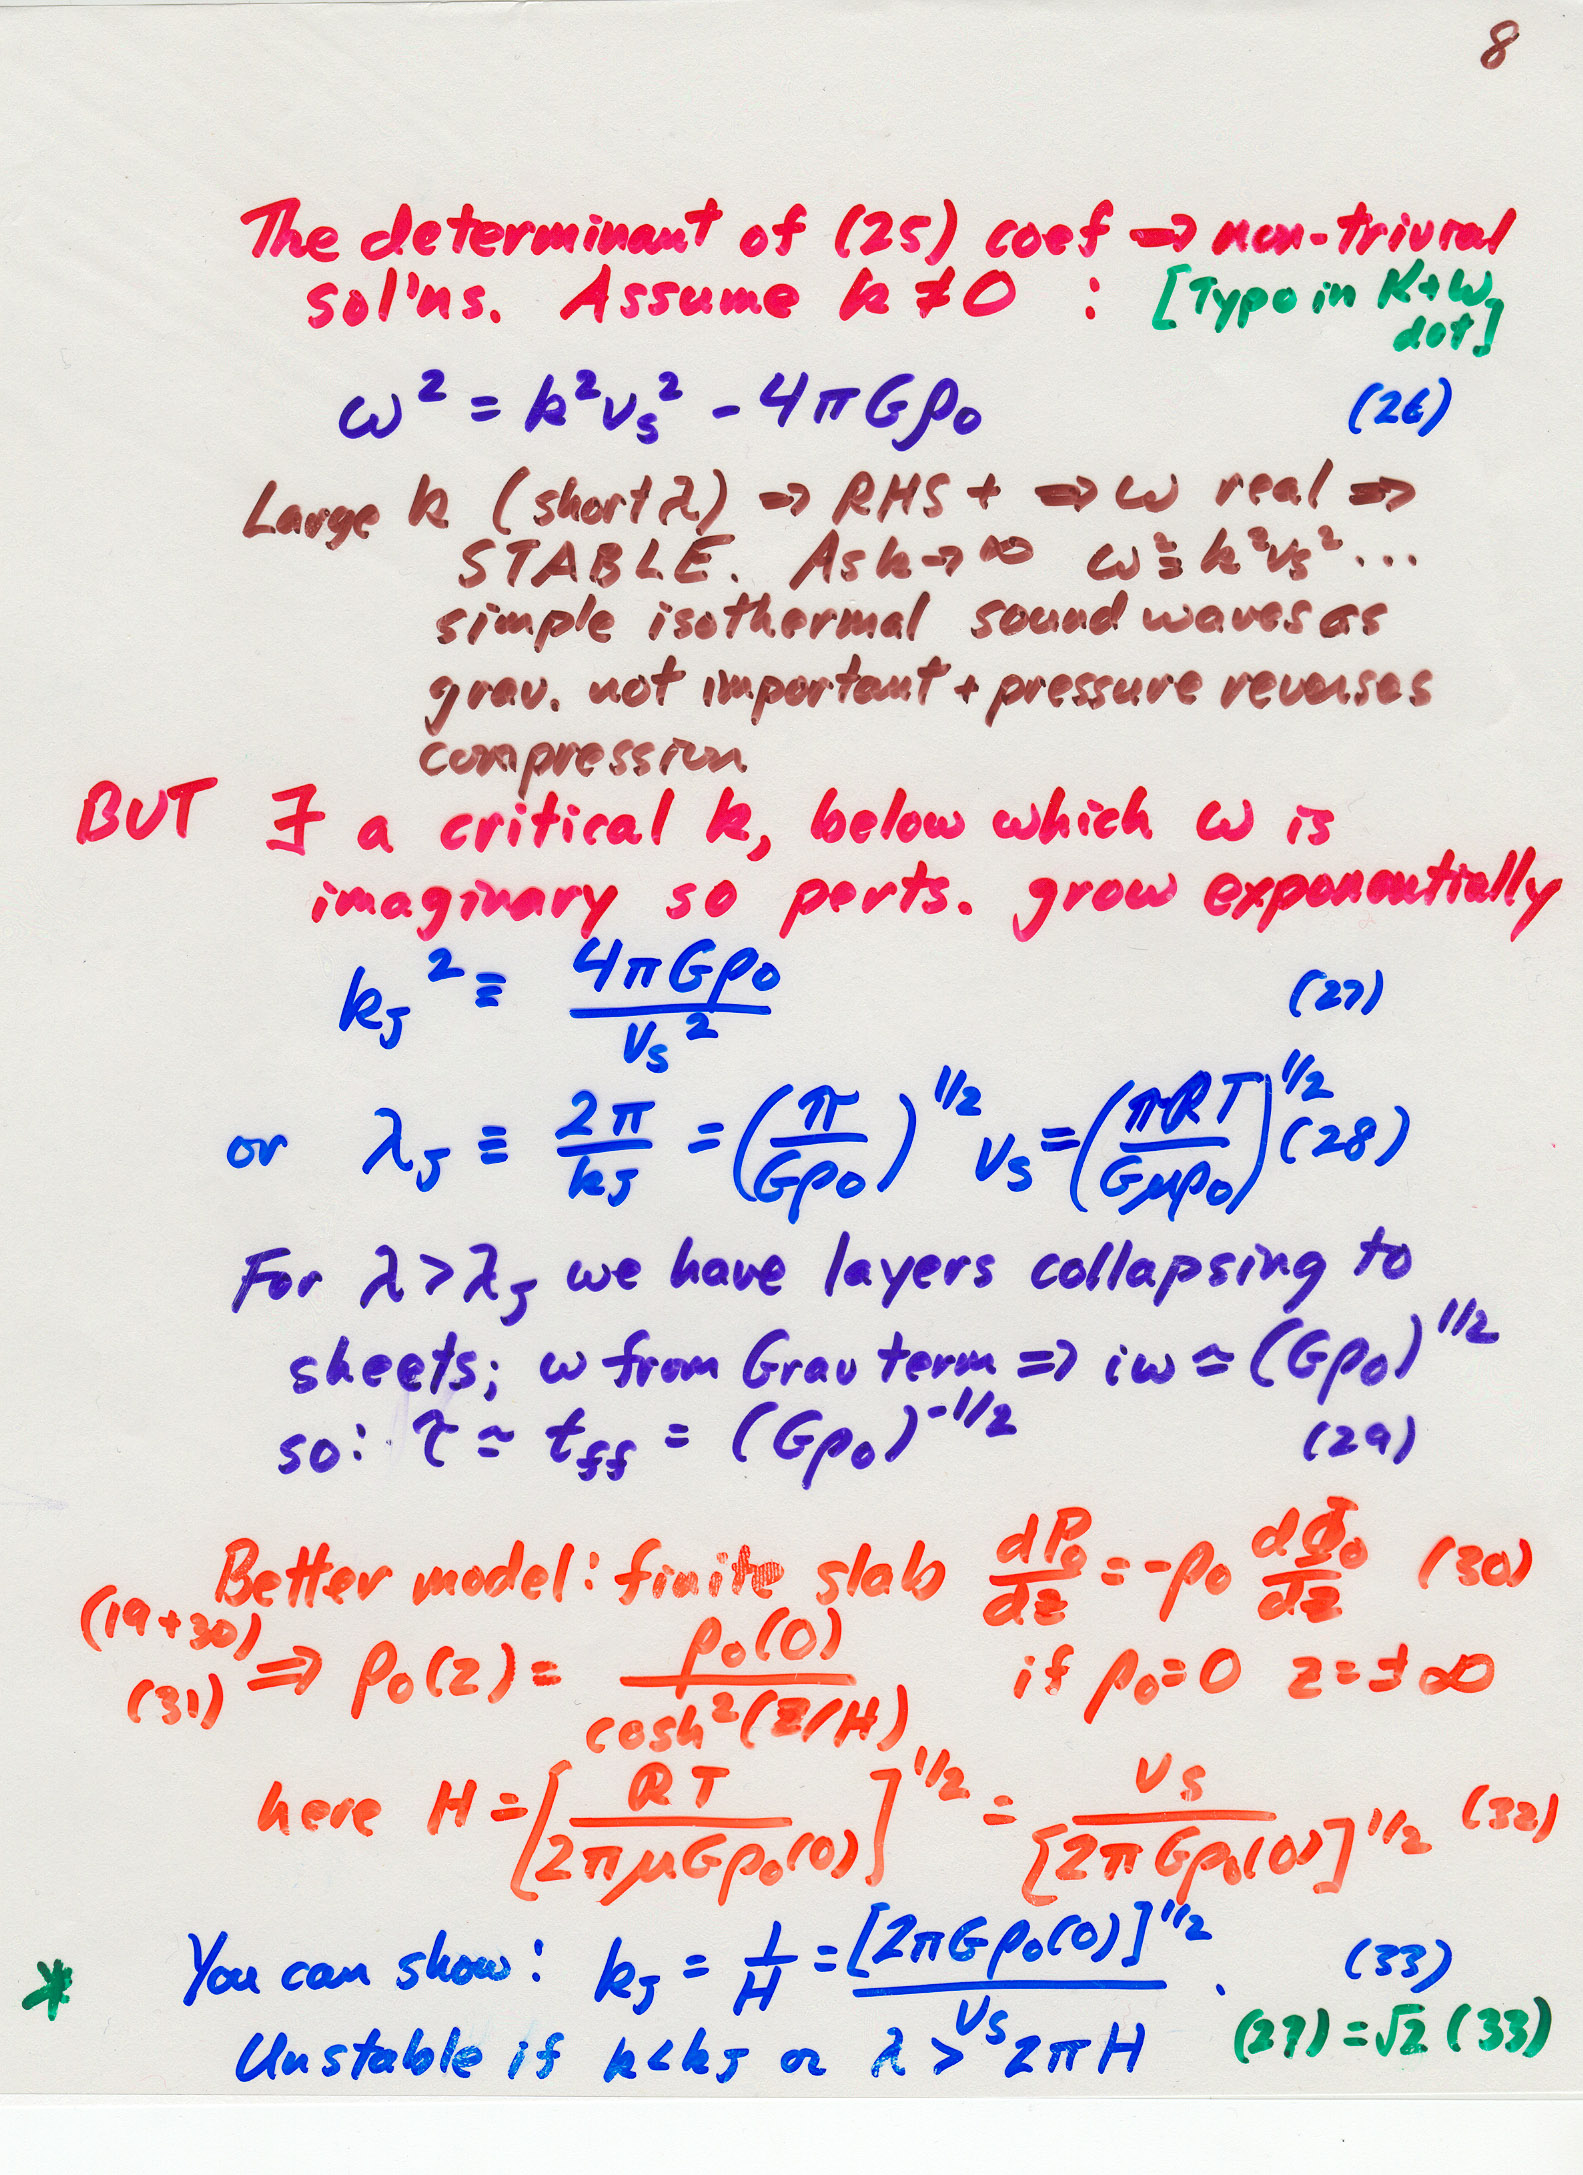 8
The determinant of (25) coef ⇒ non-trivial
sol'ns. Assume k ≠ 0 : [Typo in K+W,
dot]
ω² = k²v_s² - 4πGρ₀ (26)
Large k (short λ) ⇒ RHS + ⇒ ω real ⇒
STABLE. As k→∞ ω² ≅ k²v_s² ...
simple isothermal sound waves as
grav. not important + pressure reverses
compression
BUT ∃ a critical k, below which ω is
imaginary so perts. grow exponentially
k_J² ≡ 4πGρ₀ / v_s² (27)
or λ_J ≡ 2π/k_J = (π/Gρ₀)^1/2 v_s = (πRT/Gμρ₀)^1/2 (28)
For λ > λ_J we have layers collapsing to
sheets; ω from Grav term ⇒ iω ≃ (Gρ₀)^1/2
so: τ ≃ t_ff = (Gρ₀)^-1/2 (29)
Better model: finite slab dP₀/dz = -ρ₀ dΦ₀/dz (30)
(19+30)
(31) ⇒ ρ₀(z) = ρ₀(0) / cosh²(z/H) if ρ₀=0 z=±∞
here H = [RT / 2πμGρ₀(0)]^1/2 = v_s / [2πGρ₀(0)]^1/2 (32)
* You can show: k_J = 1/H = [2πGρ₀(0)]^1/2 / v_s . (33)
Unstable if k<k_J or λ > 2πH (27) = √2 (33)